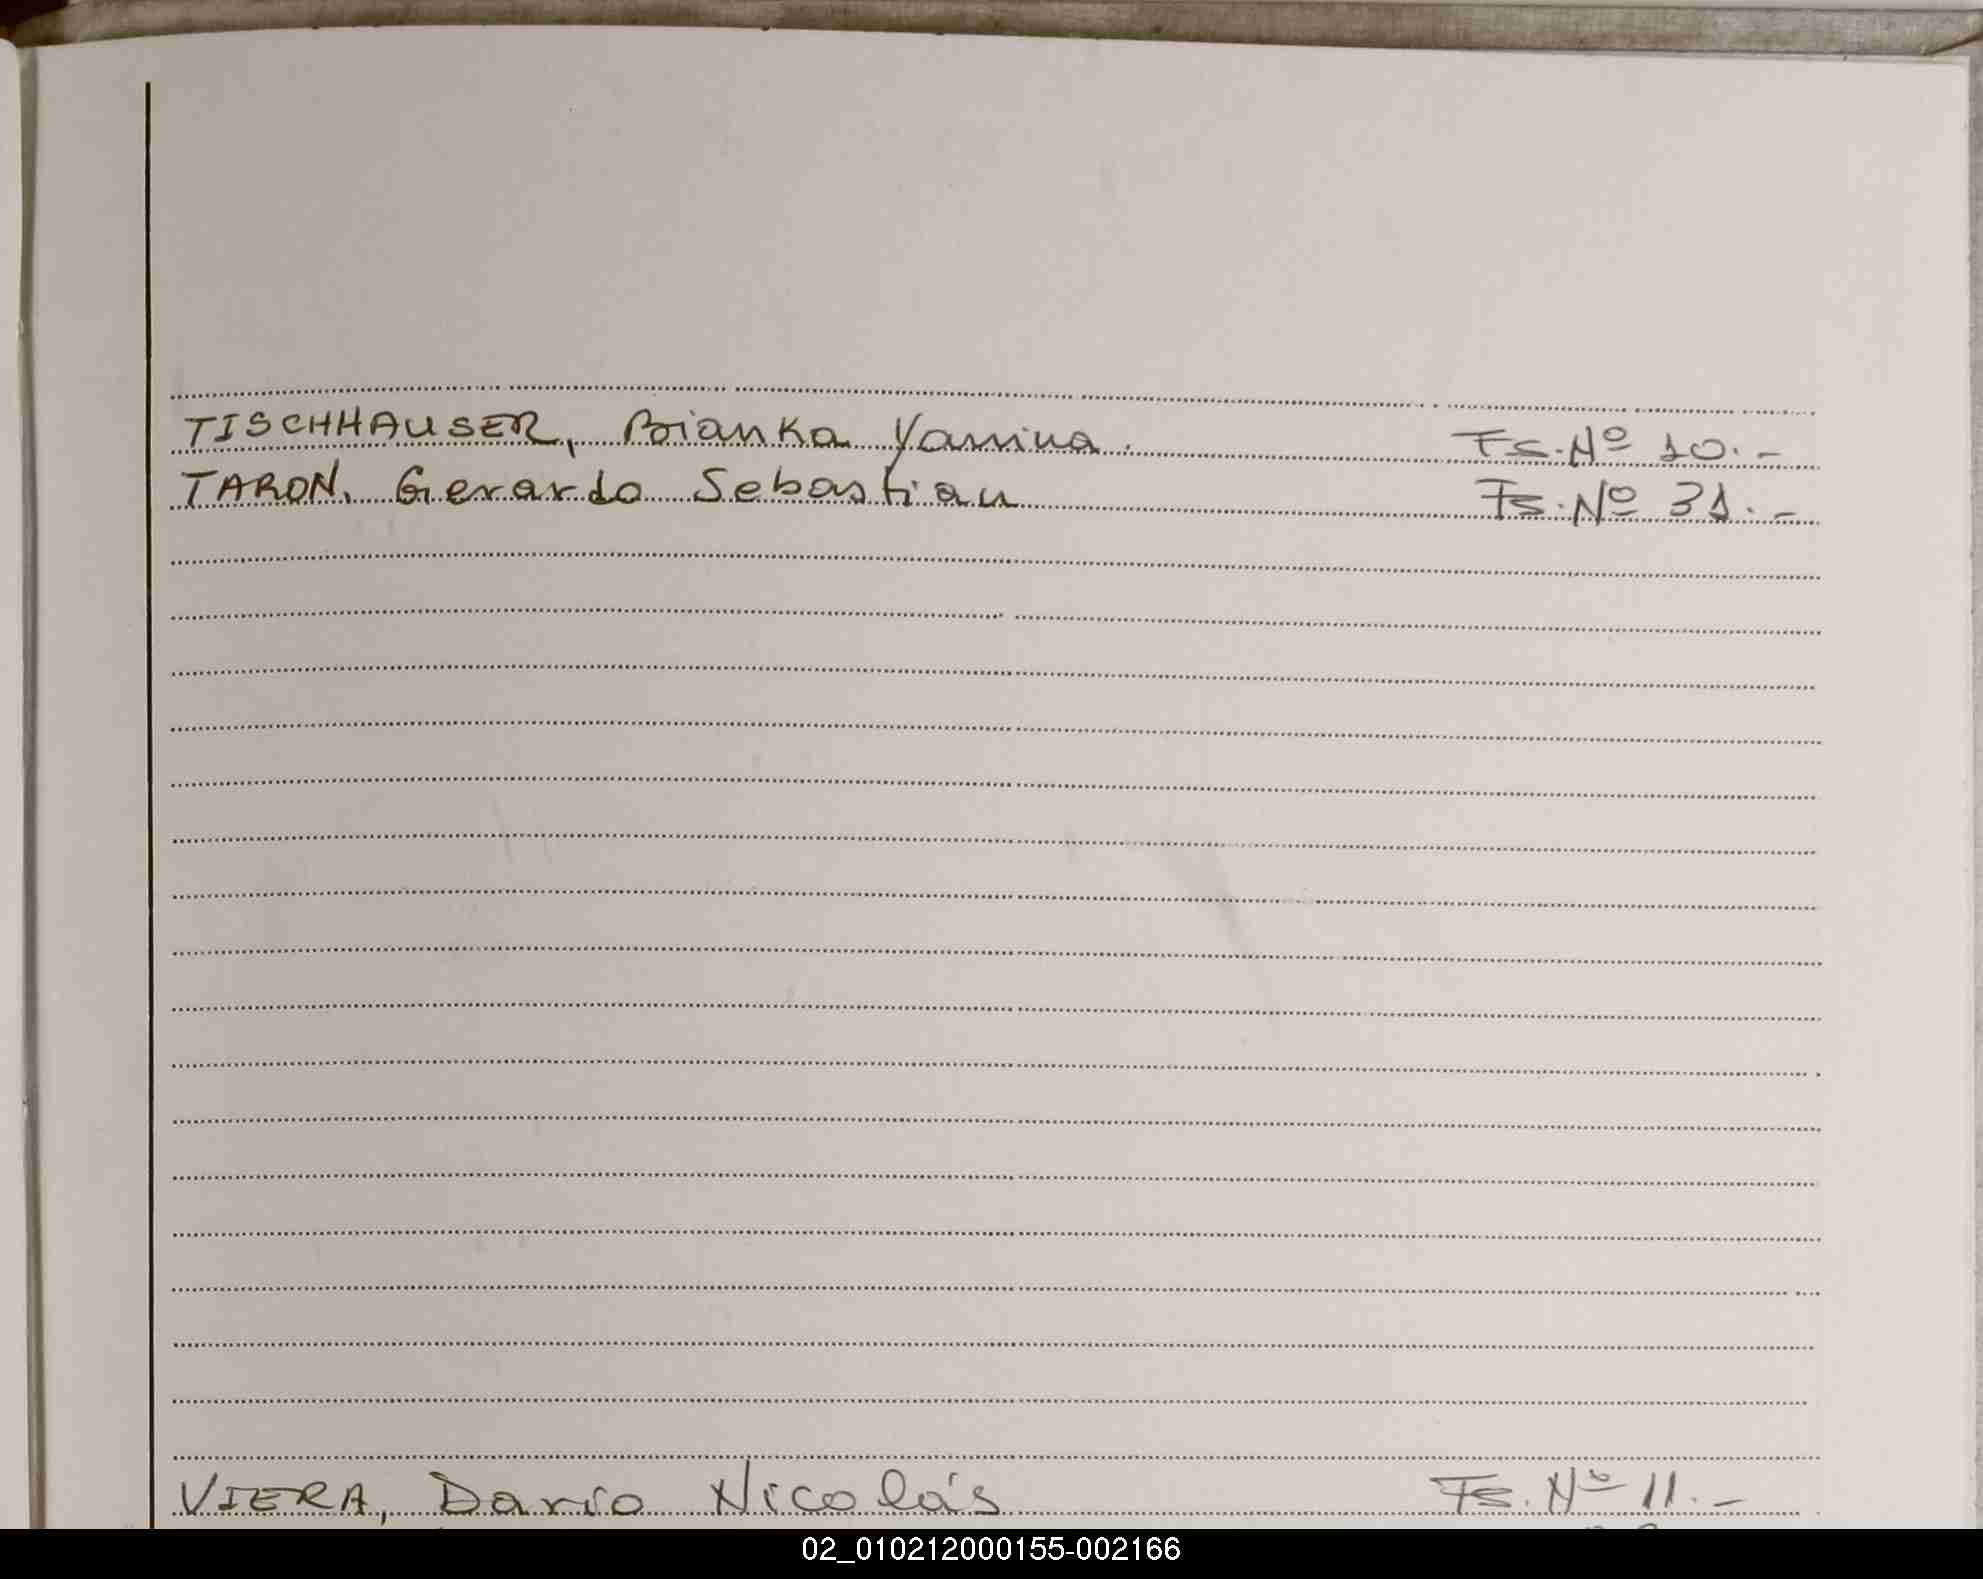 TISCHHAUSER, Bianka Yanina. Fs. Nº 10.-
TARON, Gerardo Sebastian Fs. Nº 31.-
VIERA, Dario Nicolás Fs. Nº 11.-
02_010212000155-002166